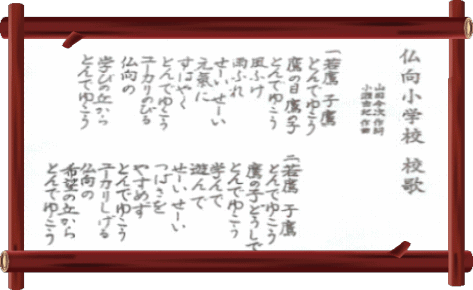 仏向小学校 校歌
作詞
作曲
一 若鷹 子鷹
とんでゆこう
鷹の目 鷹の子
とんでゆこう
風ふけ
雨ふれ
せーい せーい
元氣に
とんでゆこう
すばやく
ユーカリのびる
仏向の
学びの丘から
とんでゆこう
二 若鷹 子鷹
とんでゆこう
鷹の子どうしで
とんでゆこう
学んで
遊んで
せーい せーい
つばさを
やすめず
とんでゆこう
ユーカリしげる
仏向の
希望の丘から
とんでゆこう